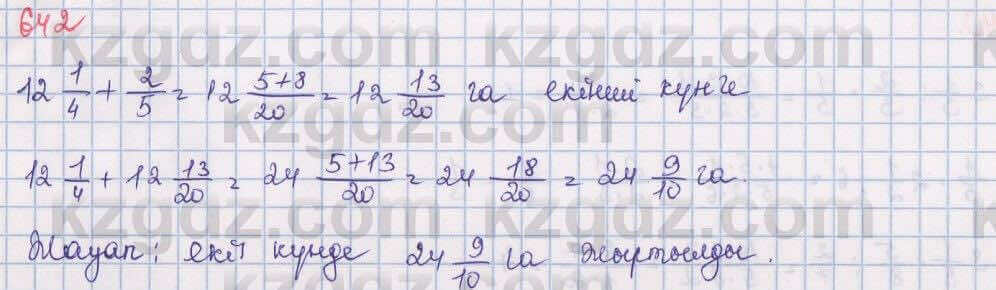 642
kzgdz.com
12 1/4 + 2/5 = 12 5+8/20 = 12 13/20 га екінші күнге
kzgdz.com
12 1/4 + 12 13/20 = 24 5+13/20 = 24 18/20 = 24 9/10 га.
kzgdz.com
Жауап: екі күнде 24 9/10 га жыртылды.